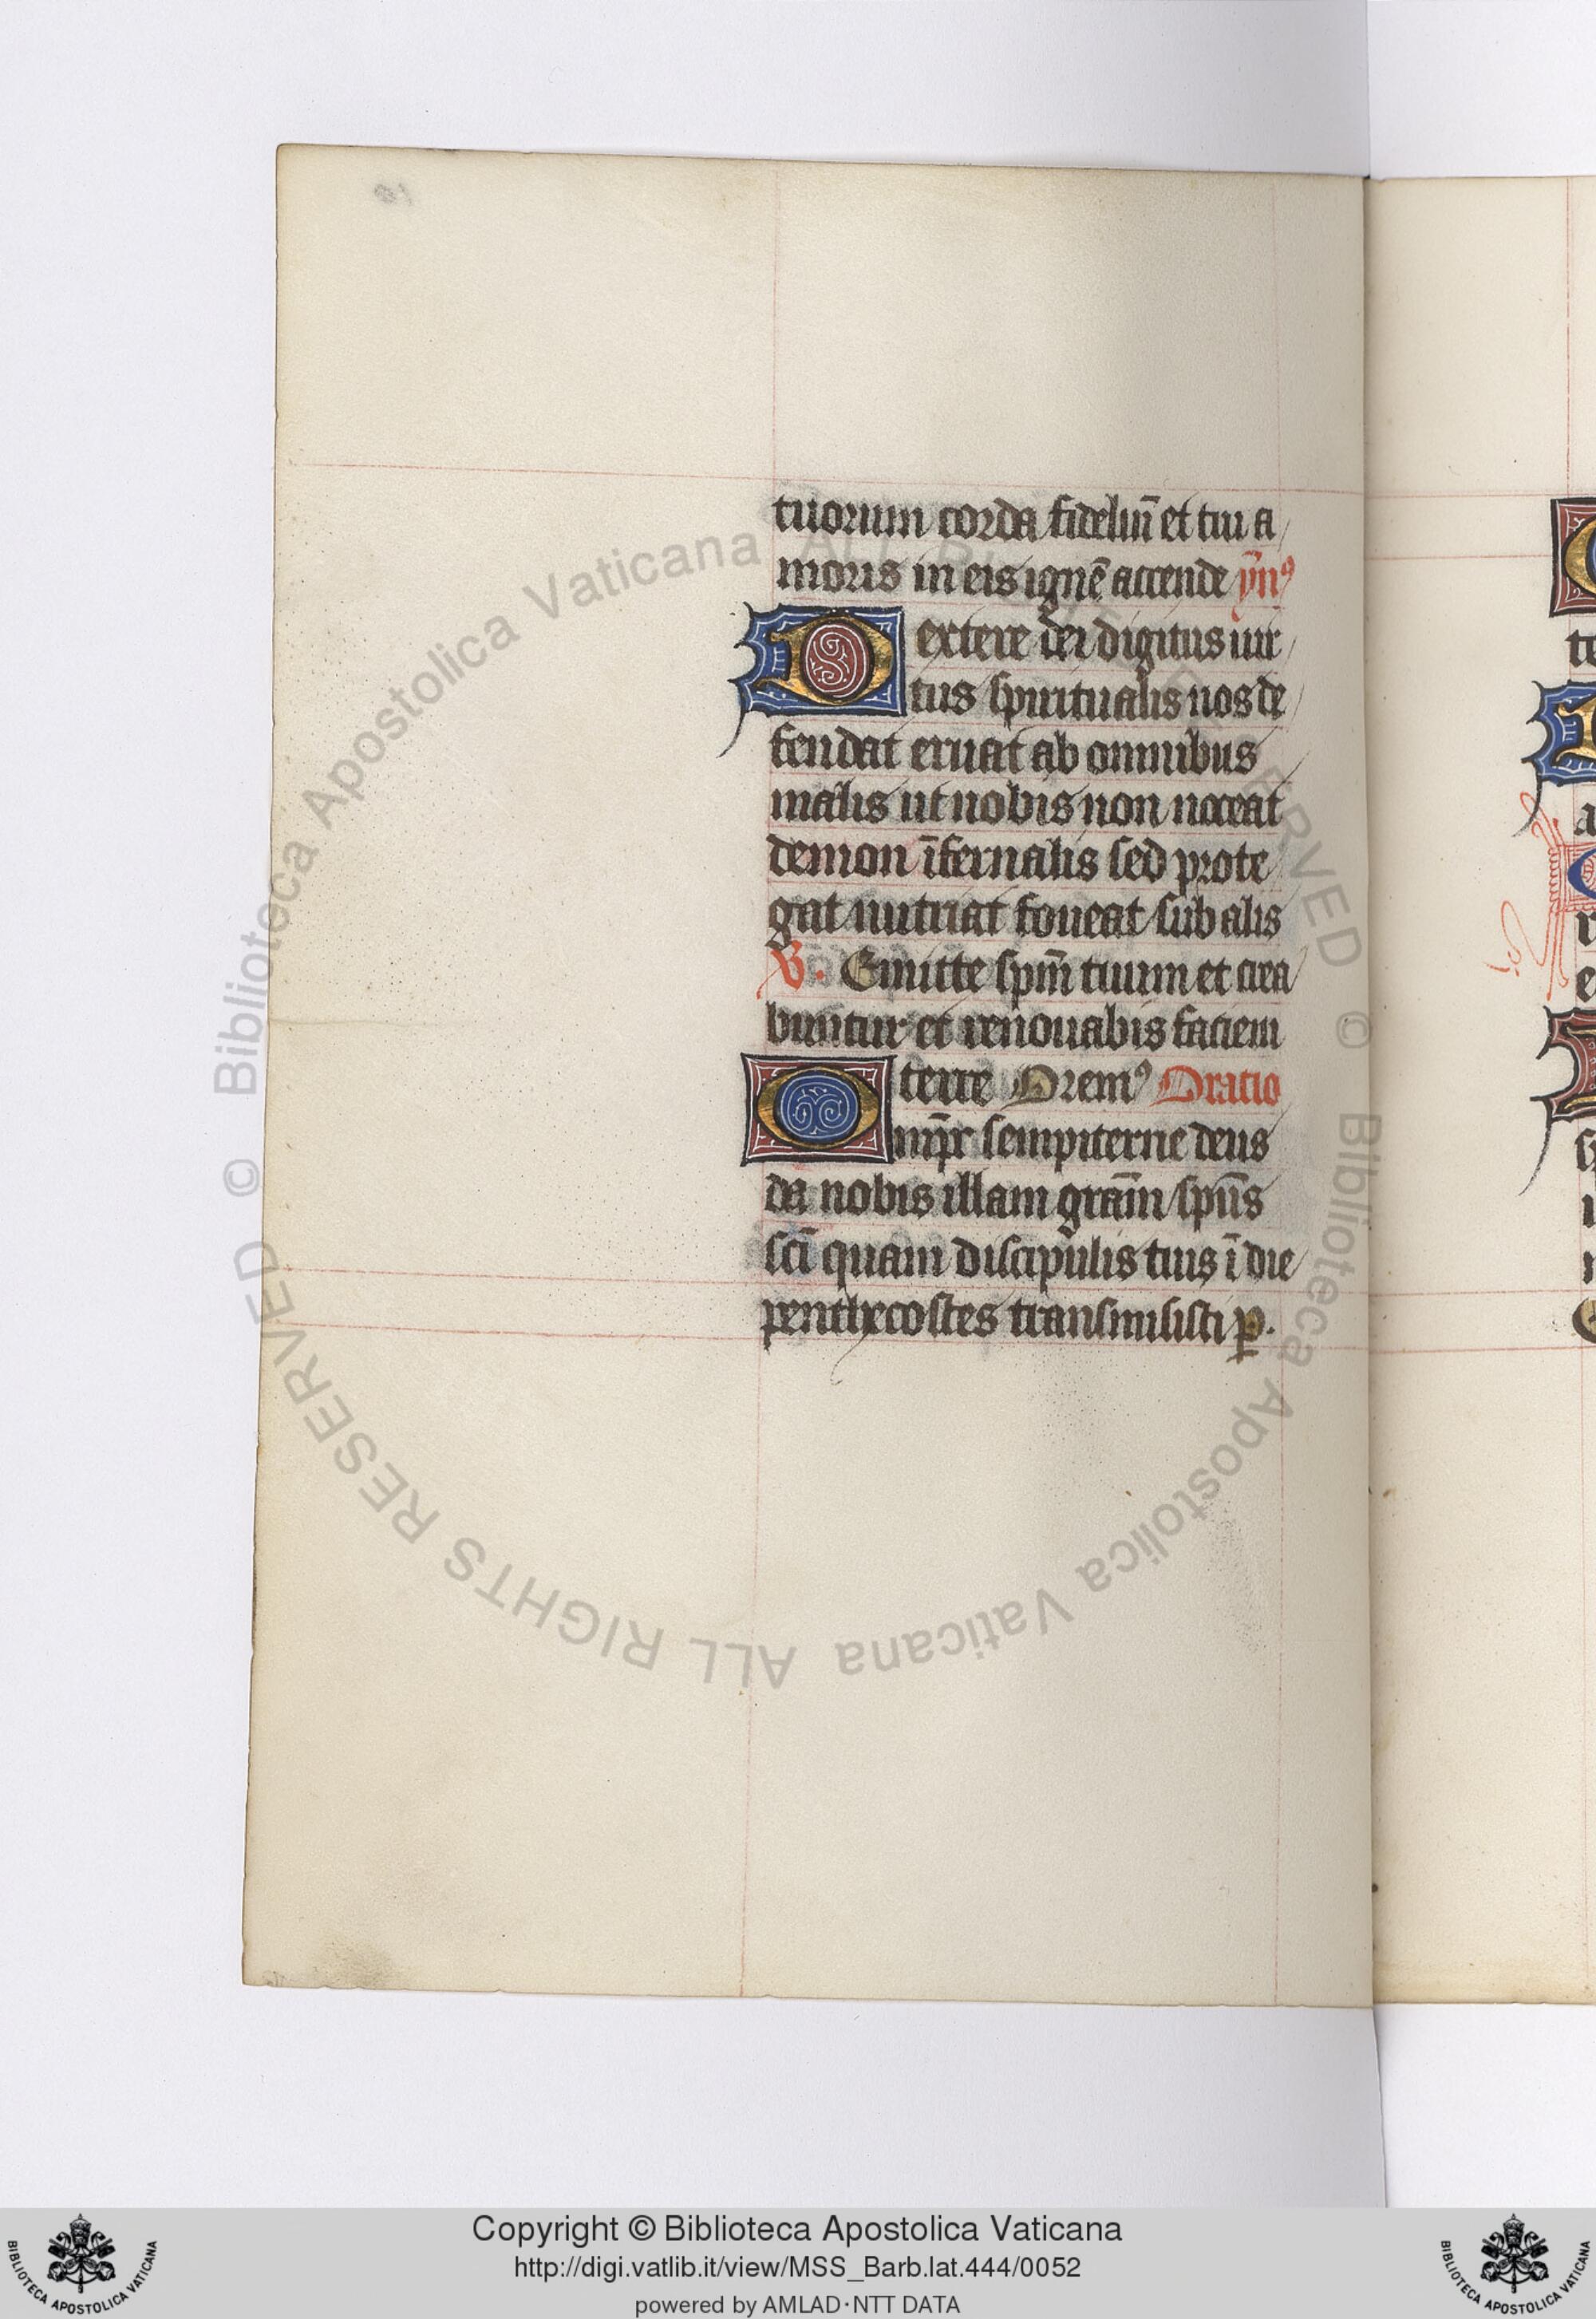 tuorum corda fideliũ et tui a
moris in eis ignẽ accende ỹnꝰ
Dextere dei digitus uir
tus spiritualis nos de
fendat eruat ab omnibus
malis ut nobis non noceat
demon ĩfernalis sed prote
gat nutriat foueat sub alis
℣. Emitte spm̃ tuum et crea
buntur et renouabis faciem
terre Oremꝰ Oratio
Omp̃s sempiterne deus
da nobis illam gram̃ spũs
sci̅ quam discipulis tuis ĩ die
penthecostes transmisisti ꝑ.
© Biblioteca Apostolica Vaticana ALL RIGHTS RESERVED © Biblioteca Apostolica Vaticana ALL RIGHTS RESERVED
Copyright © Biblioteca Apostolica Vaticana
http://digi.vatlib.it/view/MSS_Barb.lat.444/0052
powered by AMLAD·NTT DATA
BIBLIOTECA APOSTOLICA VATICANA
BIBLIOTECA APOSTOLICA VATICANA